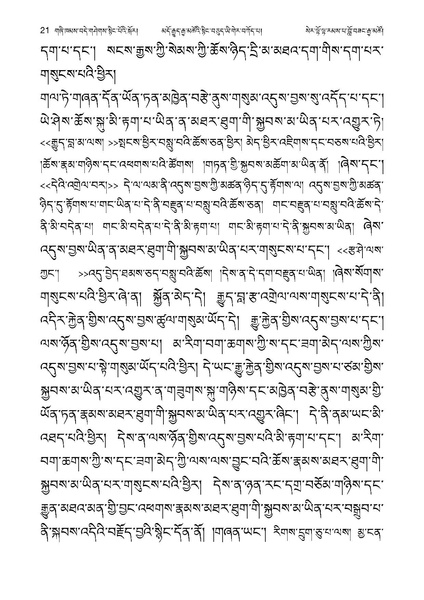 21 གཞི་ཁམས་བདེ་གཤེགས་སྙིང་པོའི་སྐོར།   མདོ་རྒྱུད་རྒྱ་མཚོའི་སྙིང་བཅུད་ཡི་གེར་བཀོད་པ།   སེར་བྱེ་ལྷ་རམས་པ་བློ་བཟང་རྒྱ་མཚོ།
དག་པ་དང་།  སངས་རྒྱས་ཀྱི་སེམས་ཀྱི་ཆོས་ཉིད་དྲི་མ་མཐའ་དག་གིས་དག་པར་
གསུངས་པའི་ཕྱིར།
གལ་ཏེ་གཞན་དོན་ཡོན་ཏན་མཁྱེན་བརྩེ་ནུས་གསུམ་འདུས་བྱས་སུ་འདོད་པ་དང་།
ཡེ་ཤེས་ཆོས་སྐུ་མི་རྟག་པ་ཡིན་ན་མཐར་ཐུག་གི་སྐྱབས་མ་ཡིན་པར་འགྱུར་ཏེ།
<<རྒྱུད་བླ་མ་ལས། >>སྤང་ཕྱིར་བསླུ་བའི་ཆོས་ཅན་ཕྱིར། མེད་ཕྱིར་འཇིགས་དང་བཅས་པའི་ཕྱིར།
།ཆོས་རྣམ་གཉིས་དང་འཕགས་པའི་ཚོགས། །གཏན་གྱི་སྐྱབས་མཆོག་མ་ཡིན་ནོ། །ཞེས་དང་།
<<དེའི་འགྲེལ་བར>> དེ་ལ་ལམ་ནི་འདུས་བྱས་ཀྱི་མཚན་ཉིད་དུ་རྟོགས་ལ། འདུས་བྱས་ཀྱི་མཚན་
ཉིད་དུ་རྟོགས་པ་གང་ཡིན་པ་དེ་ནི་བརྫུན་པ་བསླུ་བའི་ཆོས་ཅན།  གང་བརྫུན་པ་བསླུ་བའི་ཆོས་དེ་
ནི་མི་བདེན་པ།  གང་མི་བདེན་པ་དེ་ནི་མི་རྟག་པ།  གང་མི་རྟག་པ་དེ་ནི་སྐྱབས་མ་ཡིན། ཞེས་
འདུས་བྱས་ཡིན་ན་མཐར་ཐུག་གི་སྐྱབས་མ་ཡིན་པར་གསུངས་པ་དང་། <<རྩ་ཤེ་ལས་
ཀྱང་།  >>འདུ་བྱེད་ཐམས་ཅད་བསླུ་བའི་ཆོས། །དེས་ན་དེ་དག་བརྫུན་པ་ཡིན། །ཞེས་སོགས་
གསུངས་པའི་ཕྱིར་ཞེ་ན།  སྐྱོན་མེད་དེ།  རྒྱུད་བླ་རྩ་འགྲེལ་ལས་གསུངས་པ་དེ་ནི།
འདིར་རྐྱེན་གྱིས་འདུས་བྱས་ཚུལ་གསུམ་ཡོད་དེ།  རྒྱུ་རྐྱེན་གྱིས་འདུས་བྱས་པ་དང་།
ལས་ཉོན་གྱིས་འདུས་བྱས་པ།  མ་རིག་བག་ཆགས་ཀྱི་ས་དང་ཟག་མེད་ལས་ཀྱིས་
འདུས་བྱས་པ་སྟེ་གསུམ་ཡོད་པའི་ཕྱིར། དེ་ཡང་རྒྱུ་རྐྱེན་གྱིས་འདུས་བྱས་པ་ཙམ་གྱིས་
སྐྱབས་མ་ཡིན་པར་འགྱུར་ན་གཟུགས་སྐུ་གཉིས་དང་མཁྱེན་བརྩེ་ནུས་གསུམ་གྱི་
ཡོན་ཏན་རྣམས་མཐར་ཐུག་གི་སྐྱབས་མ་ཡིན་པར་འགྱུར་ཞིང་།  དེ་ནི་ནམ་ཡང་མི་
འཐད་པའི་ཕྱིར།  དེས་ན་ལས་ཉོན་གྱིས་འདུས་བྱས་པའི་མི་རྟག་པ་དང་།  མ་རིག་
བག་ཆགས་ཀྱི་ས་དང་ཟག་མེད་ཀྱི་ལས་ལས་བྱུང་བའི་ཆོས་རྣམས་མཐར་ཐུག་གི་
སྐྱབས་མ་ཡིན་པར་གསུངས་པའི་ཕྱིར།  དེས་ན་ཉན་རང་དགྲ་བཅོམ་གཉིས་དང་
རྒྱུན་མཐའ་མན་གྱི་བྱང་འཕགས་རྣམས་མཐར་ཐུག་གི་སྐྱབས་མ་ཡིན་པར་བསྒྲུབ་པ་
ནི་སྐབས་འདིའི་བརྗོད་བྱའི་སྙིང་དོན་ནོ། །གཞན་ཡང་། རིགས་དྲུག་ཅུ་པ་ལས། མྱ་ངན་